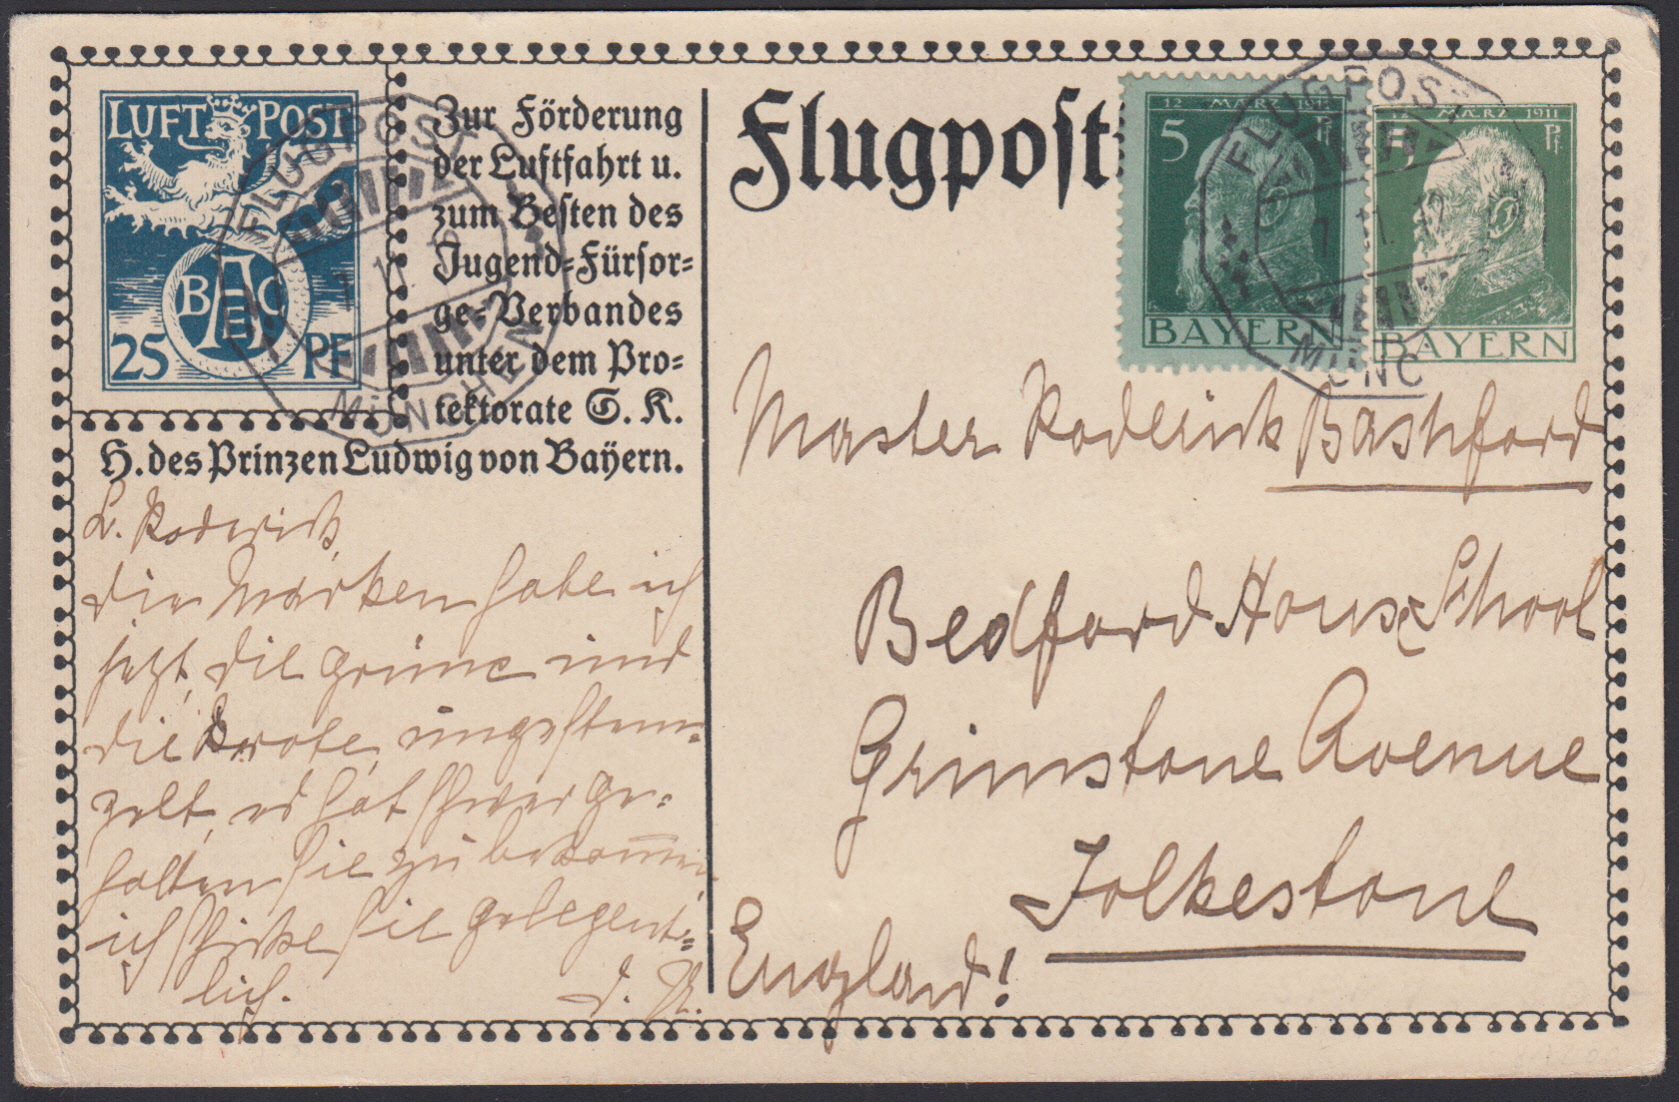 LUFT POST
BAEC
25 PF
FLUGPOST
MÜNCHEN
Zur Förderung
der Luftfahrt u.
zum Besten des
Jugend-Fürsor-
ge-Verbandes
unter dem Pro-
tektorate S. K.
H. des Prinzen Ludwig von Bayern.
Flugpost
12 MÄRZ 1911
5 Pf
BAYERN
MÄRZ 1911
Pf
BAYERN
FLUGPOST
MÜNC
L. Roderick,
die Marken habe ich
jetzt, die grüne und
die rote, ungestem-
pelt, es hat schwer ge-
halten sie zu bekommen,
ich schicke sie gelegent-
lich.
Master Roderick Bashford
Bedford House School
Grimstone Avenue
Folkestone
England!